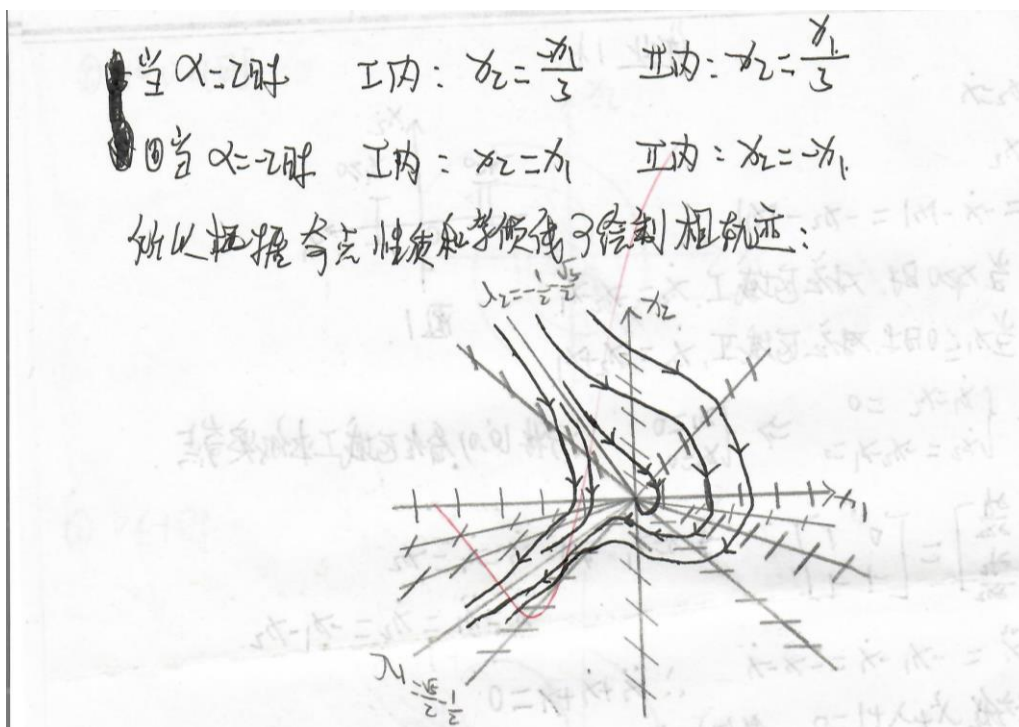 当α=2时 I内: x₂=-x₁/3 II内: x₂=x₁/3
①当α=-2时 I内: x₂=x₁ II内: x₂=-x₁
所以根据奇点性质和等倾线可绘制相轨迹:
λ₂=-1/2-√5/2
x₂
x₁
λ₁=√5/2-1/2